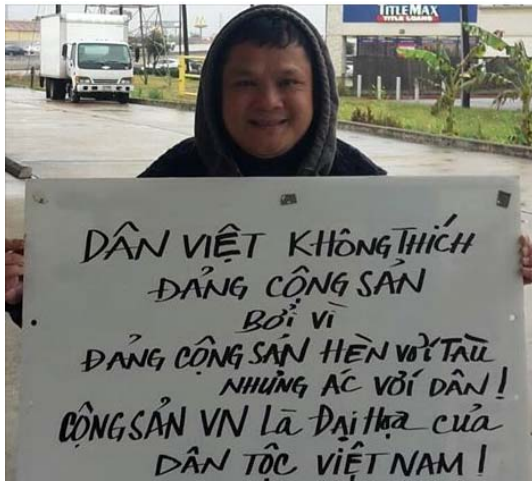 TITLEMAX
TITLE LOANS
DÂN VIỆT KHÔNG THÍCH
ĐẢNG CỘNG SẢN
BỞI VÌ
ĐẢNG CỘNG SẢN HÈN VỚI TÀU
NHƯNG ÁC VỚI DÂN!
CỘNG SẢN VN Là Đại Họa của
DÂN TỘC VIỆT NAM!